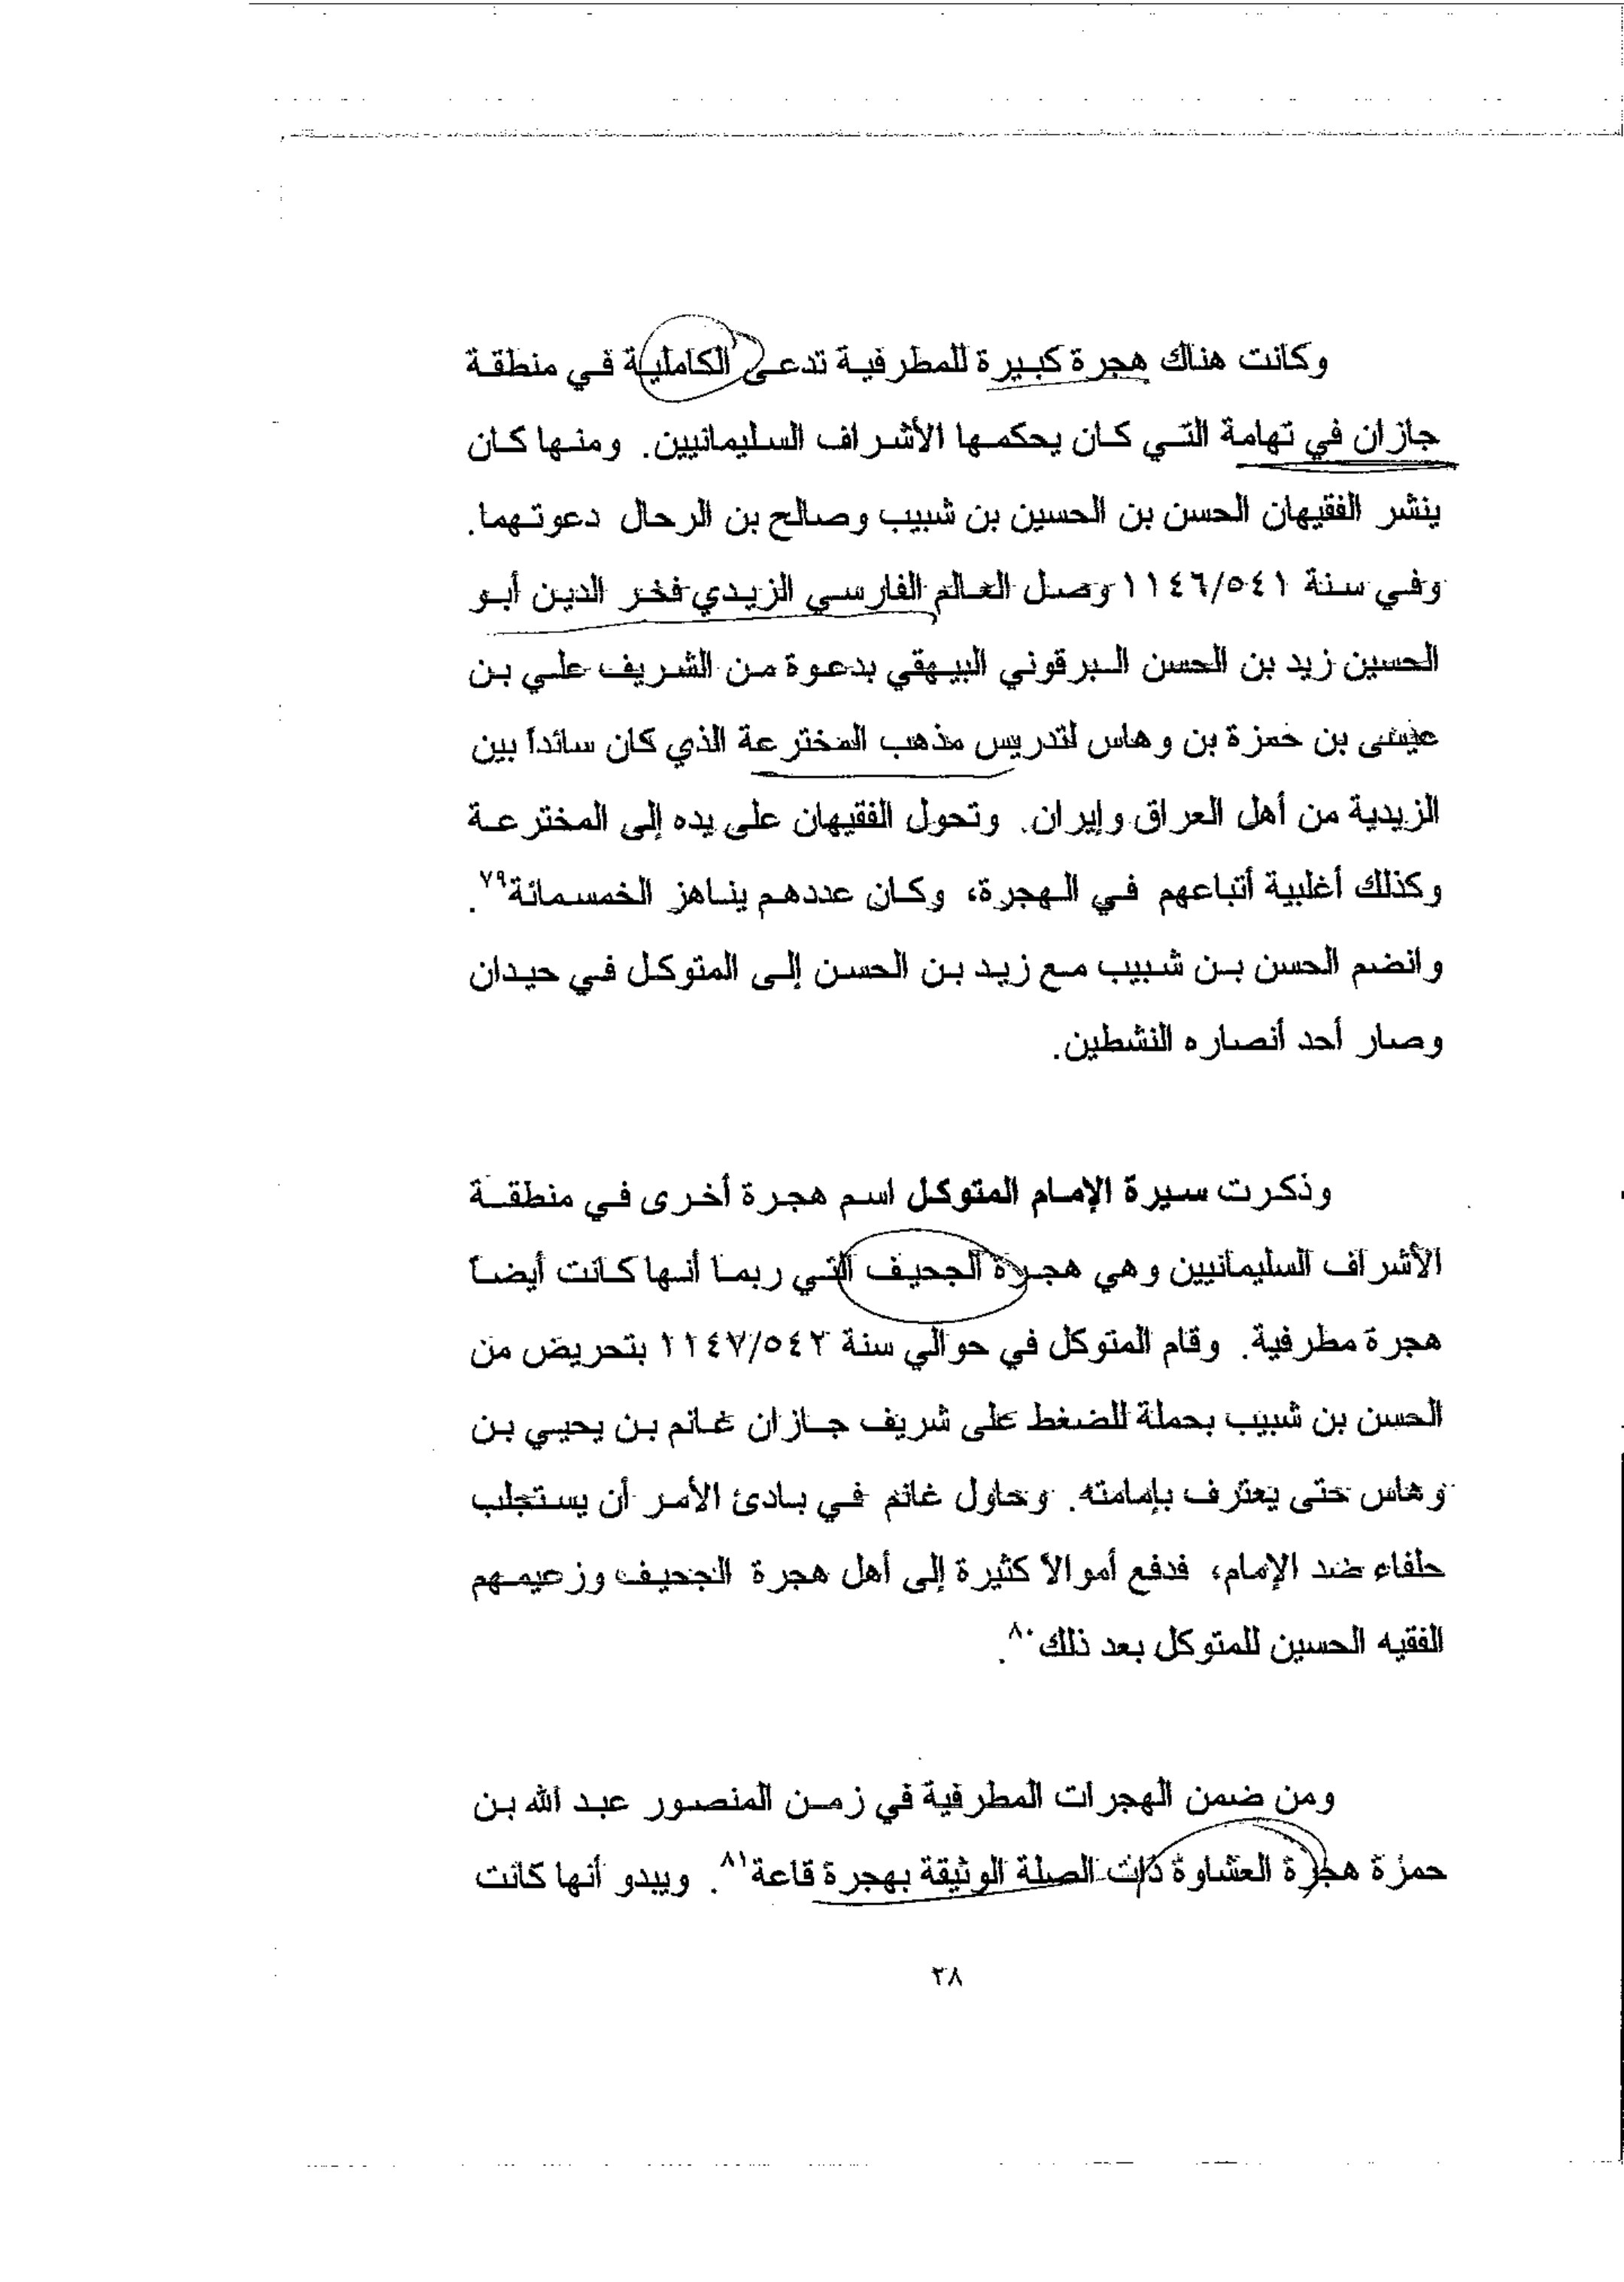 وكانت هناك هجرة كبيرة للمطرفية تدعى الكاملية في منطقة
جازان في تهامة التي كان يحكمها الأشراف السليمانيين. ومنها كان
ينشر الفقيهان الحسن بن الحسين بن شبيب وصالح بن الرحال دعوتهما.
وفي سنة ١١٤٦/٥٤١ وصل العالم الفارسي الزيدي فخر الدين أبو
الحسين زيد بن الحسن البرقوني البيهقي بدعوة من الشريف علي بن
عيسى بن حمزة بن وهاس لتدريس مذهب المخترعة الذي كان سائداً بين
الزيدية من أهل العراق وإيران. وتحول الفقيهان على يده إلى المخترعة
وكذلك أغلبية أتباعهم في الهجرة، وكان عددهم يناهز الخمسمائة٧٩.
وانضم الحسن بن شبيب مع زيد بن الحسن إلى المتوكل في حيدان
وصار أحد أنصاره النشطين.
وذكرت سيرة الإمام المتوكل اسم هجرة أخرى في منطقة
الأشراف السليمانيين وهي هجرة الجحيف التي ربما أنها كانت أيضاً
هجرة مطرفية. وقام المتوكل في حوالي سنة ١١٤٧/٥٤٢ بتحريض من
الحسن بن شبيب بحملة للضغط على شريف جازان غانم بن يحيي بن
وهاس حتى يعترف بإمامته. وحاول غانم في بادئ الأمر أن يستجلب
حلفاء ضد الإمام، فدفع أموالاً كثيرة إلى أهل هجرة الجحيف وزعيمهم
الفقيه الحسين للمتوكل بعد ذلك٨٠.
ومن ضمن الهجرات المطرفية في زمن المنصور عبد الله بن
حمزة هجرة العشاوة ذات الصلة الوثيقة بهجرة قاعة٨١. ويبدو أنها كانت
٢٨